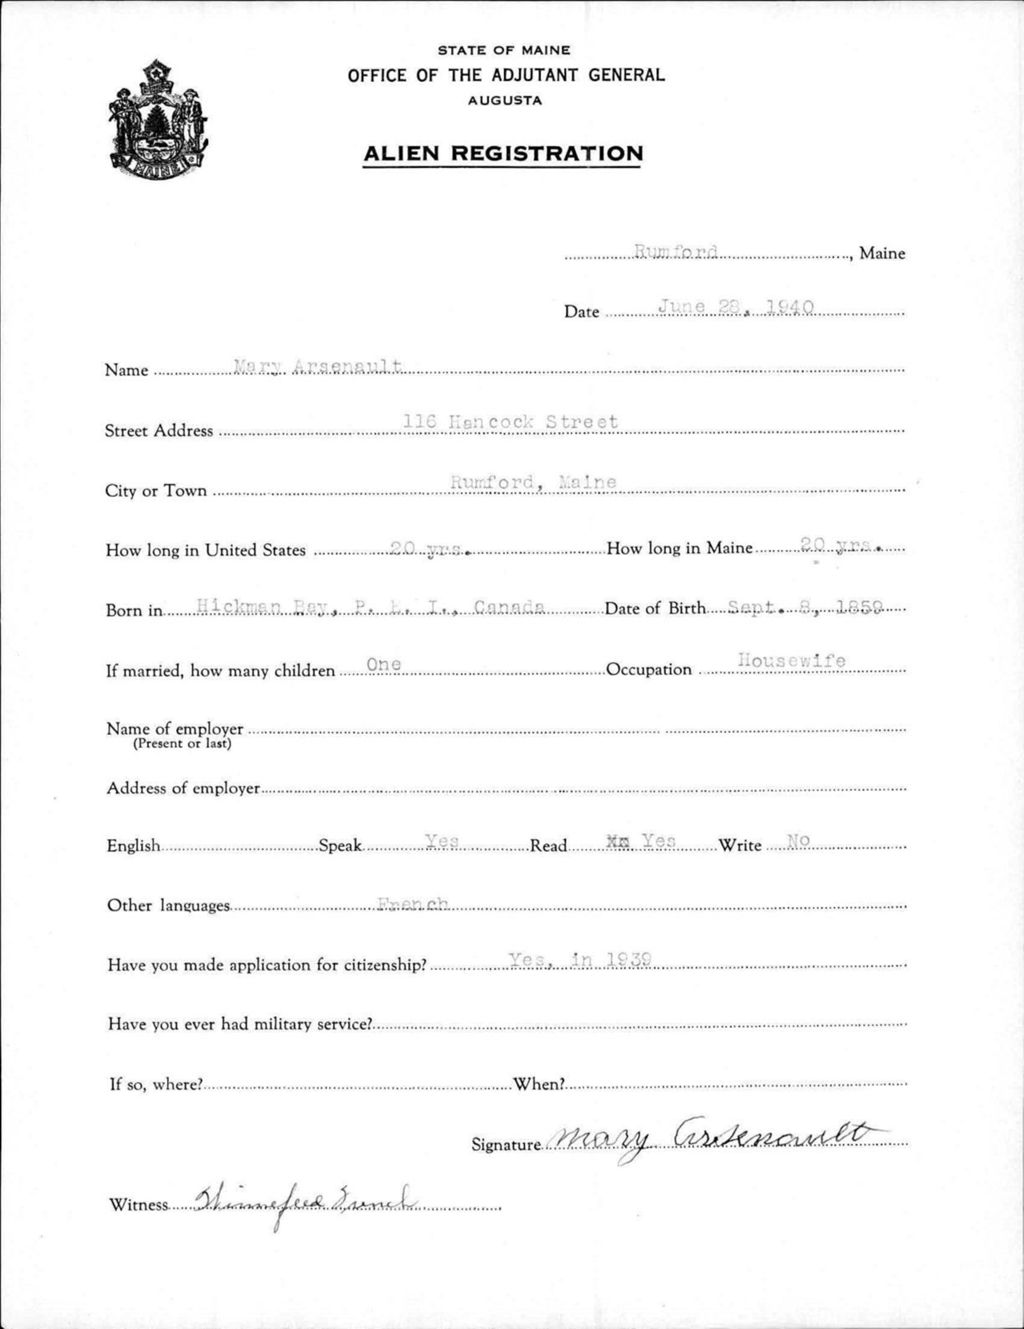 STATE OF MAINE
OFFICE OF THE ADJUTANT GENERAL
AUGUSTA
ALIEN REGISTRATION
MAINE
Rumford, Maine
Date June 28, 1940
Name Mary Arsenault
Street Address 116 Hancock Street
City or Town Rumford, Maine
How long in United States 20 yrs. How long in Maine 20 yrs.
Born in Hickman Bay, P. E. I., Canada Date of Birth Sept. 8, 1859
If married, how many children One Occupation Housewife
Name of employer
(Present or last)
Address of employer
English Speak Yes Read Yes Write No
Other languages French
Have you made application for citizenship? Yes, in 1939
Have you ever had military service?
If so, where? When?
Signature Mary Arsenault
Witness